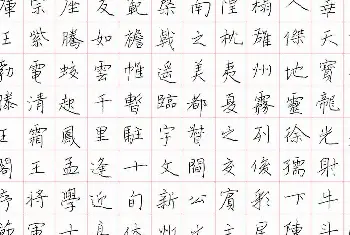 華天寶龍光射牛斗
人傑地靈徐孺下陳
榻雄州霧列俊彩星
隍枕夷夏之交賓主
南之美都督閻公之
棨戟遙臨宇文新州
範襜惟暫駐十的休
友如雲千里逢迎高
座騰蛟起鳳孟學士
宗紫電清霜王將軍
庫王勃滕王閣序節